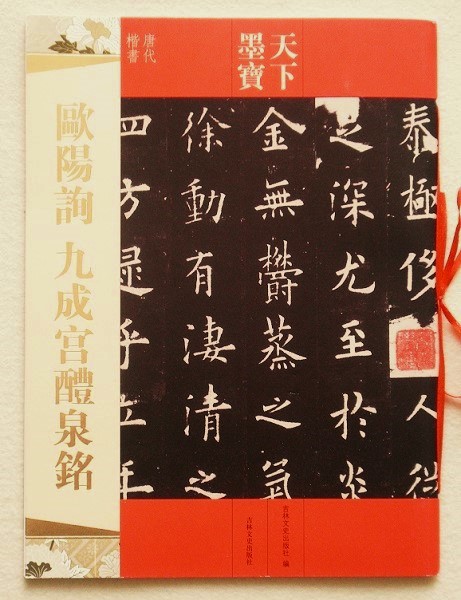 天下
墨寶
唐代
楷書
歐陽詢 九成宫醴泉銘
泰極侈人從
深尤至於炎
金無欝蒸之氣
徐動有淒清之
四方逮乎立年
吉林文史出版社 編
吉林文史出版社